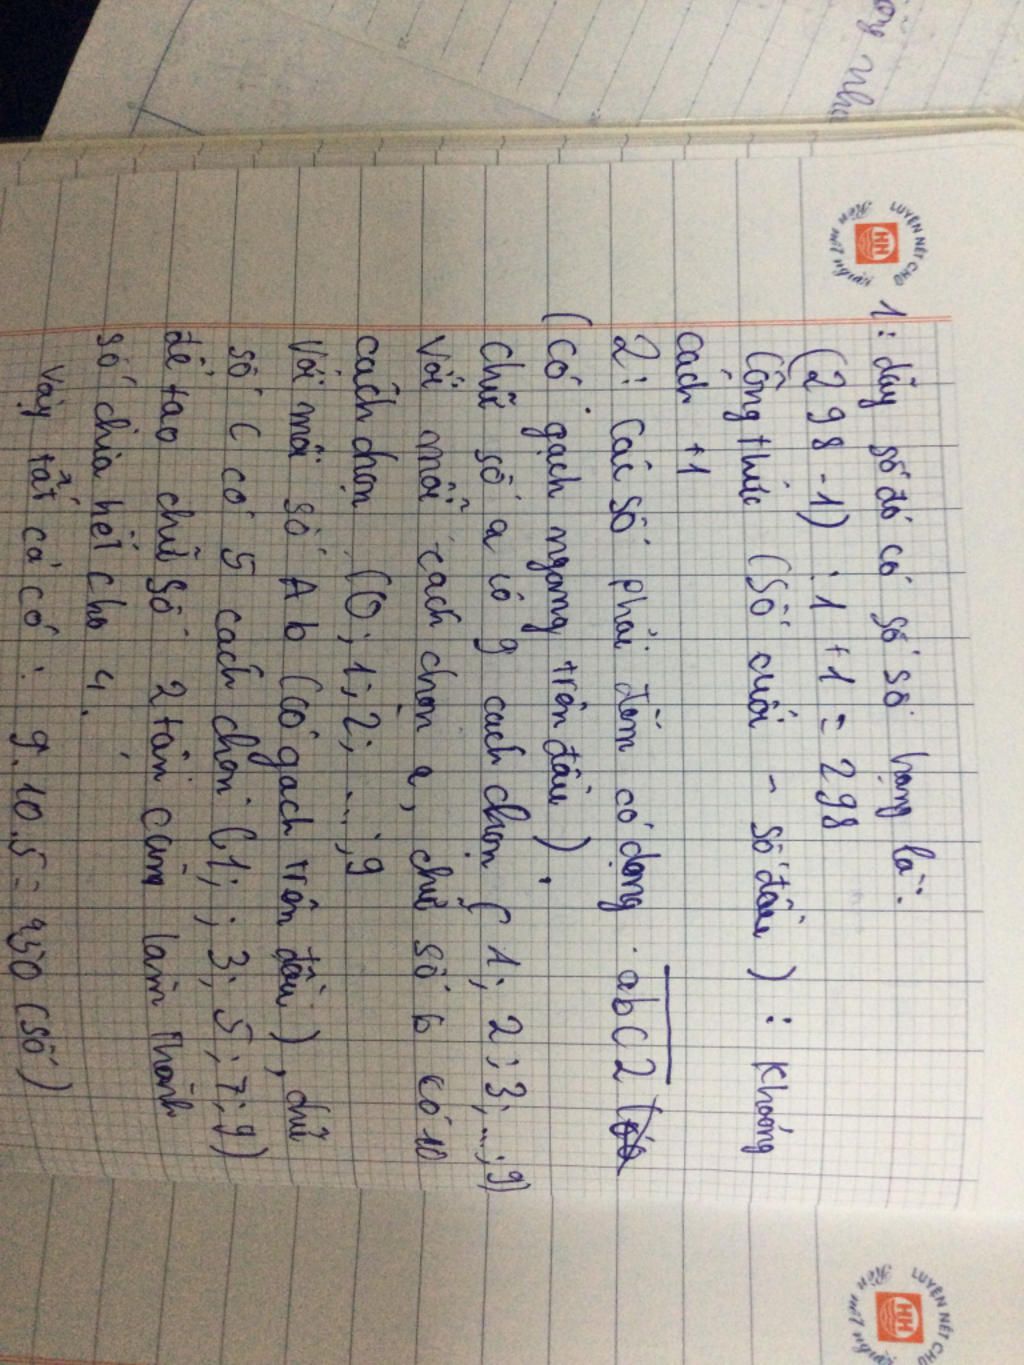 LUYỆN NÉT CHỮ
HH
Rèn nết người
1: dãy số đó có số số hạng là:
(298 - 1) : 1 + 1 = 298
Công thức (Số cuối - số đầu) : Khoảng
cách +1
2: Các số phải đếm có dạng abC2
(Có gạch ngang trên đầu).
Chữ số a có 9 cách chọn (1; 2; 3; ...; 9)
Với mỗi cách chọn a, chữ số b có 10
cách chọn (0; 1; 2; ...; 9
Với mỗi số Ab (có gạch trên đầu), chữ
số C có 5 cách chọn (1; ; 3; 5; 7; 9)
để tạo chữ số 2 tận cùng làm thành
số chia hết cho 4.
Vậy tất cả có: 9.10.5 = 450 (số)
LUYỆN NÉT CHỮ
HH
Rèn nết người